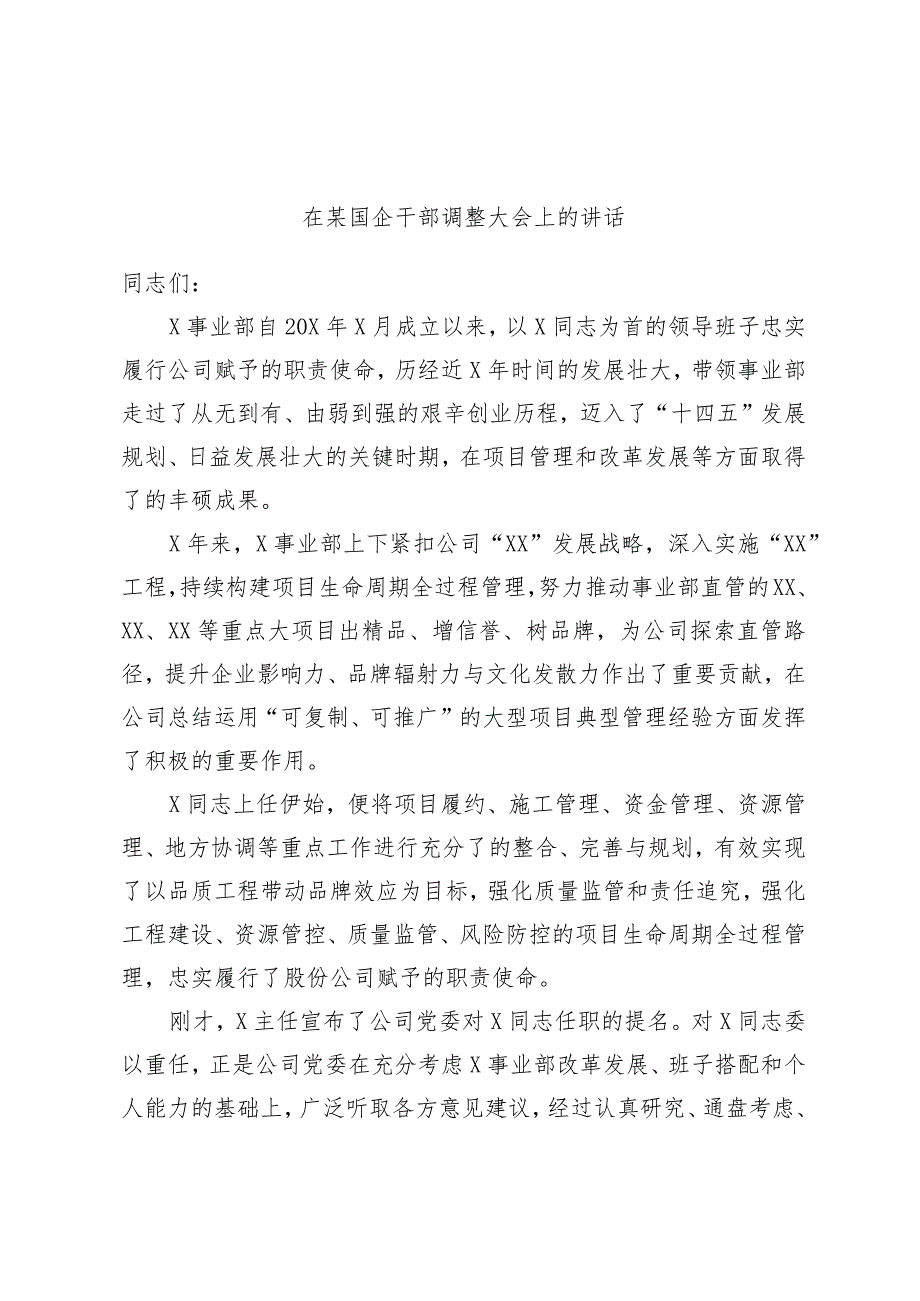 在某国企干部调整大会上的讲话
同志们：
X事业部自20X年X月成立以来，以X同志为首的领导班子忠实
履行公司赋予的职责使命，历经近X年时间的发展壮大，带领事业部
走过了从无到有、由弱到强的艰辛创业历程，迈入了“十四五”发展
规划、日益发展壮大的关键时期，在项目管理和改革发展等方面取得
了的丰硕成果。
X年来，X事业部上下紧扣公司“XX”发展战略，深入实施“XX”
工程，持续构建项目生命周期全过程管理，努力推动事业部直管的XX、
XX、XX等重点大项目出精品、增信誉、树品牌，为公司探索直管路
径，提升企业影响力、品牌辐射力与文化发散力作出了重要贡献，在
公司总结运用“可复制、可推广”的大型项目典型管理经验方面发挥
了积极的重要作用。
X同志上任伊始，便将项目履约、施工管理、资金管理、资源管
理、地方协调等重点工作进行充分了的整合、完善与规划，有效实现
了以品质工程带动品牌效应为目标，强化质量监管和责任追究，强化
工程建设、资源管控、质量监管、风险防控的项目生命周期全过程管
理，忠实履行了股份公司赋予的职责使命。
刚才，X主任宣布了公司党委对X同志任职的提名。对X同志委
以重任，正是公司党委在充分考虑X事业部改革发展、班子搭配和个
人能力的基础上，广泛听取各方意见建议，经过认真研究、通盘考虑、